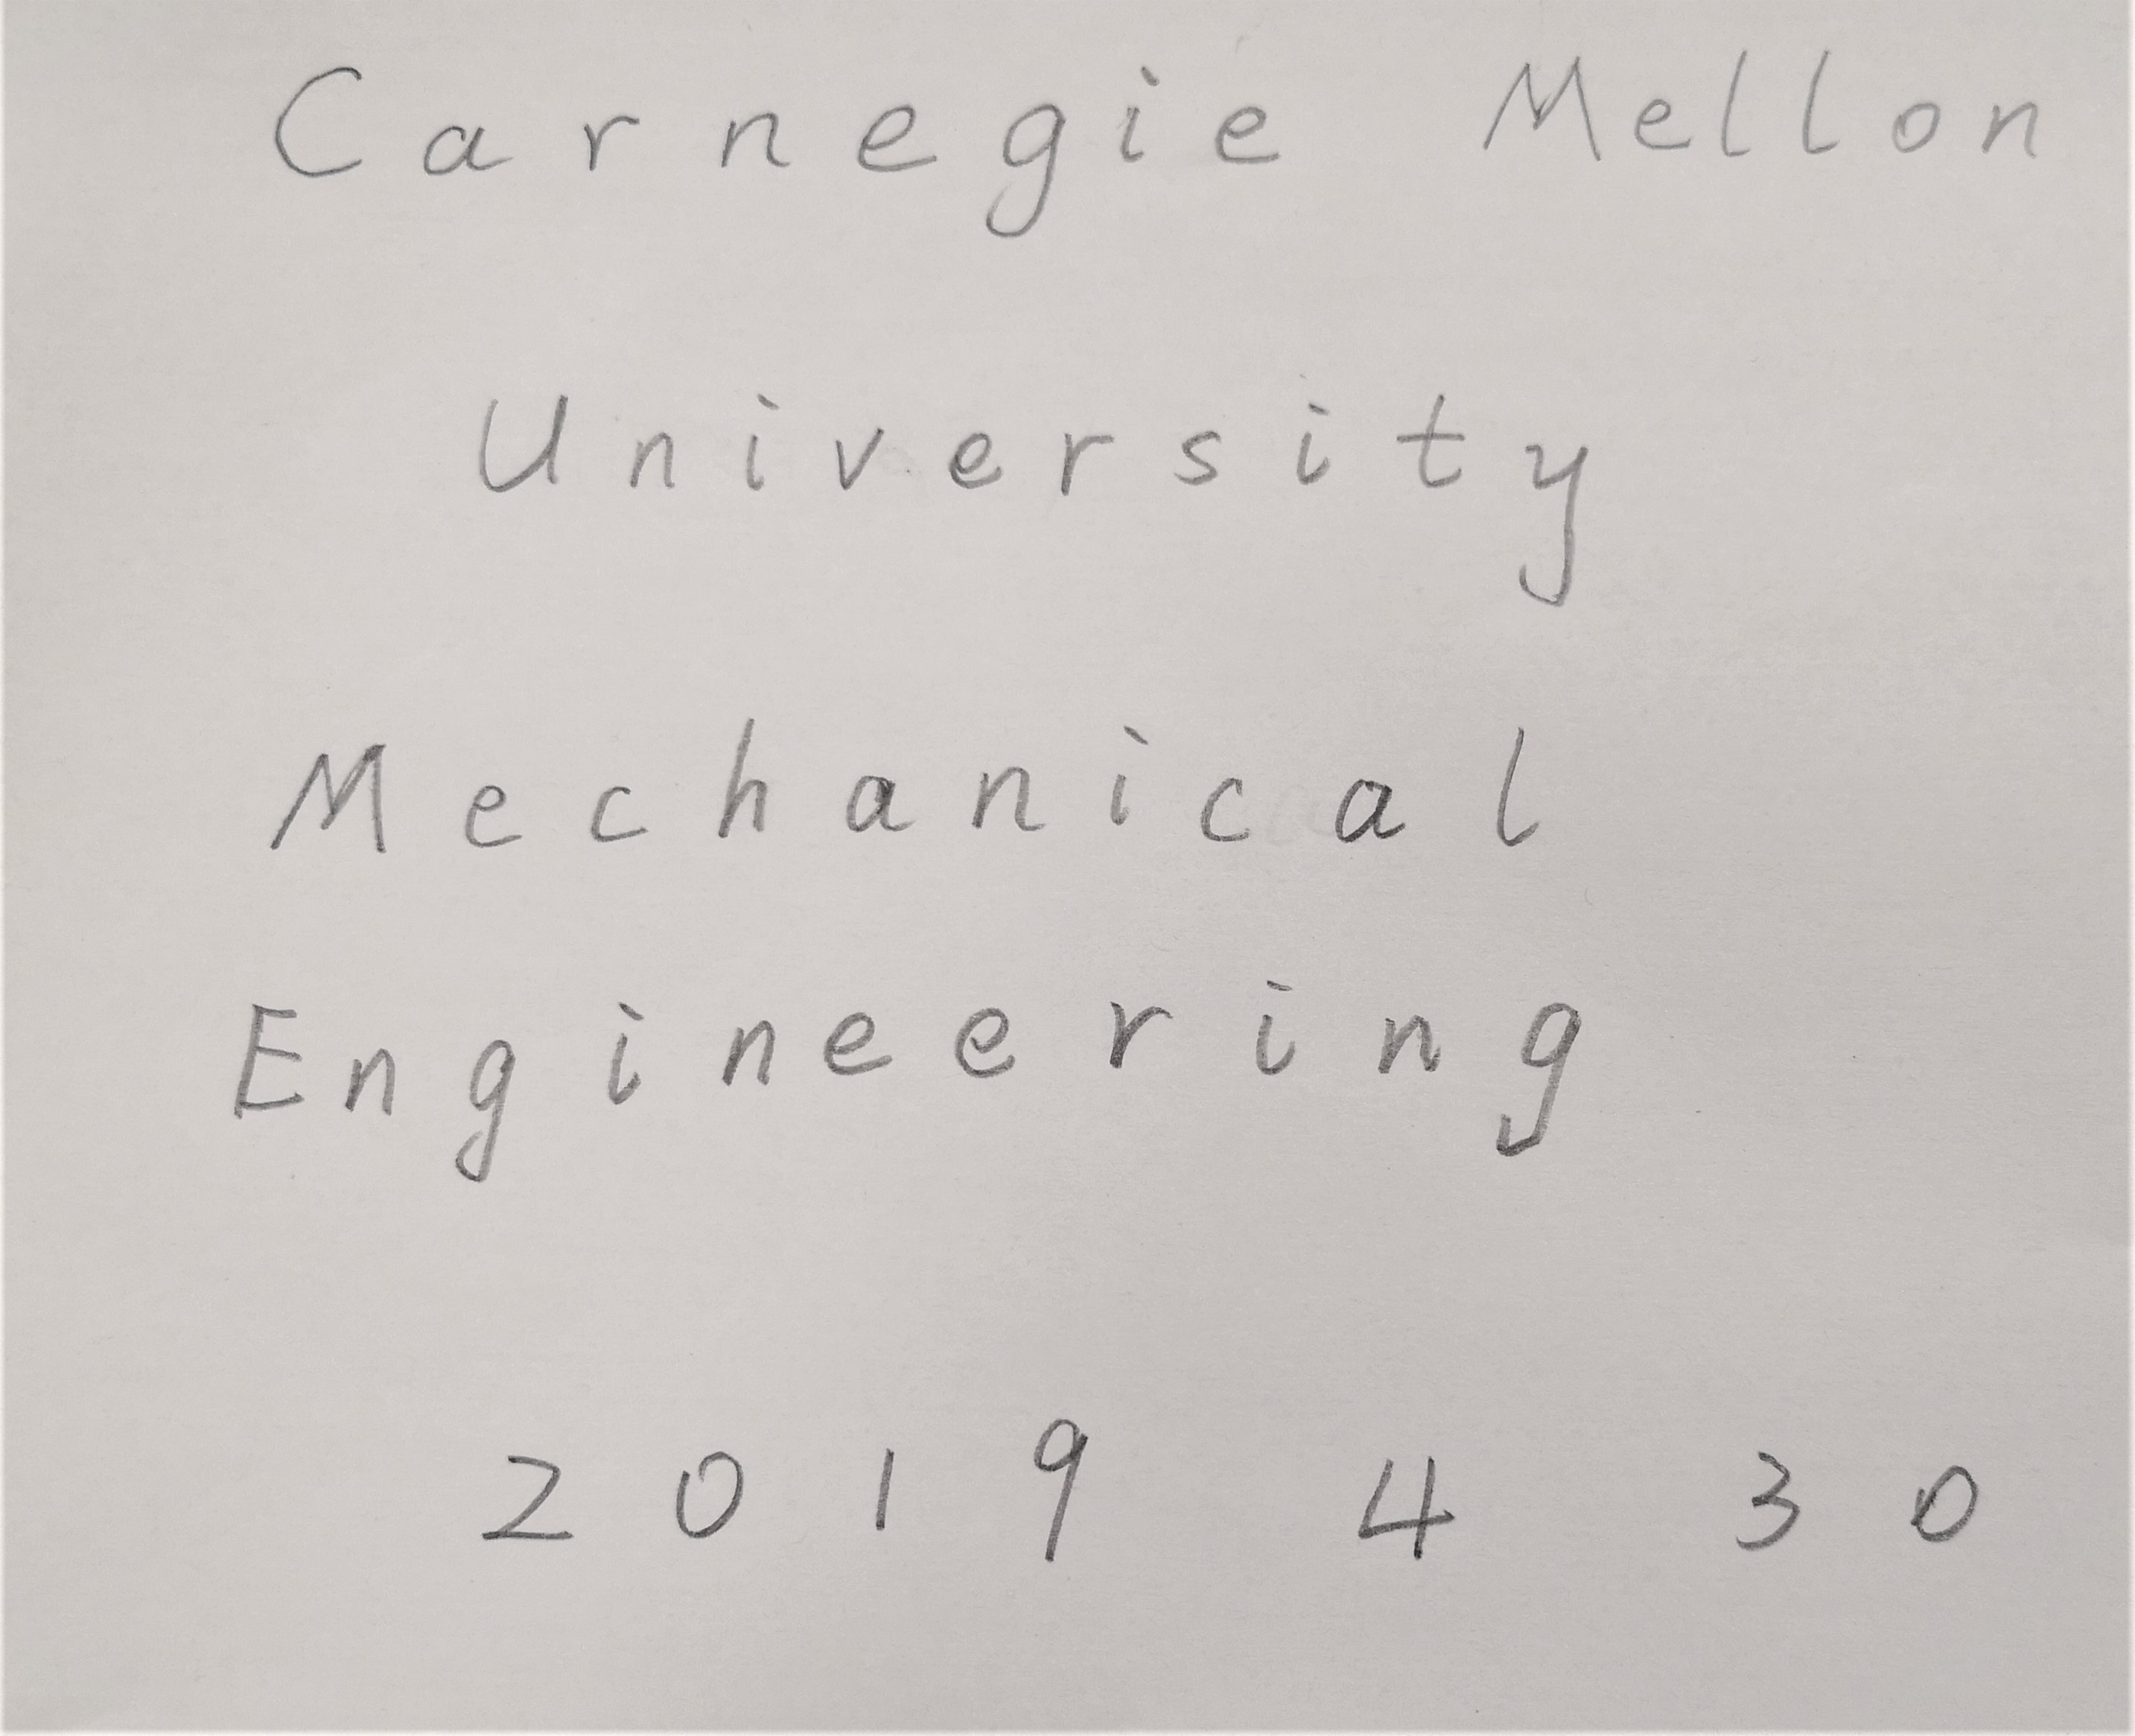 Carnegie Mellon
University
Mechanical
Engineering
2019 4 30